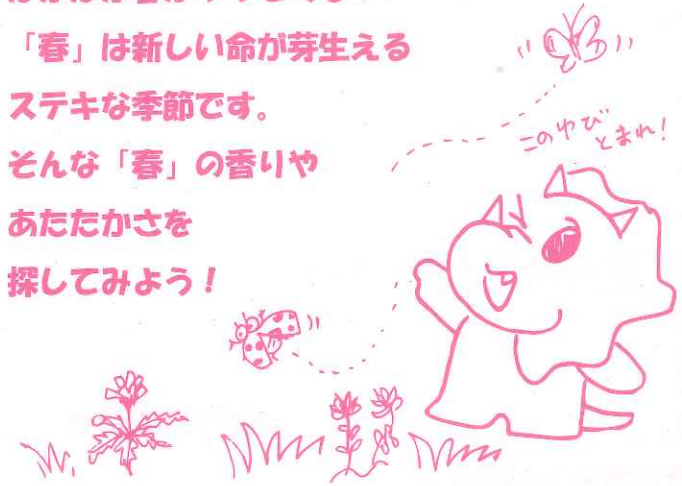 「春」は新しい命が芽生える
ステキな季節です。
そんな「春」の香りや
あたたかさを
探してみよう！
このゆび
とまれ！